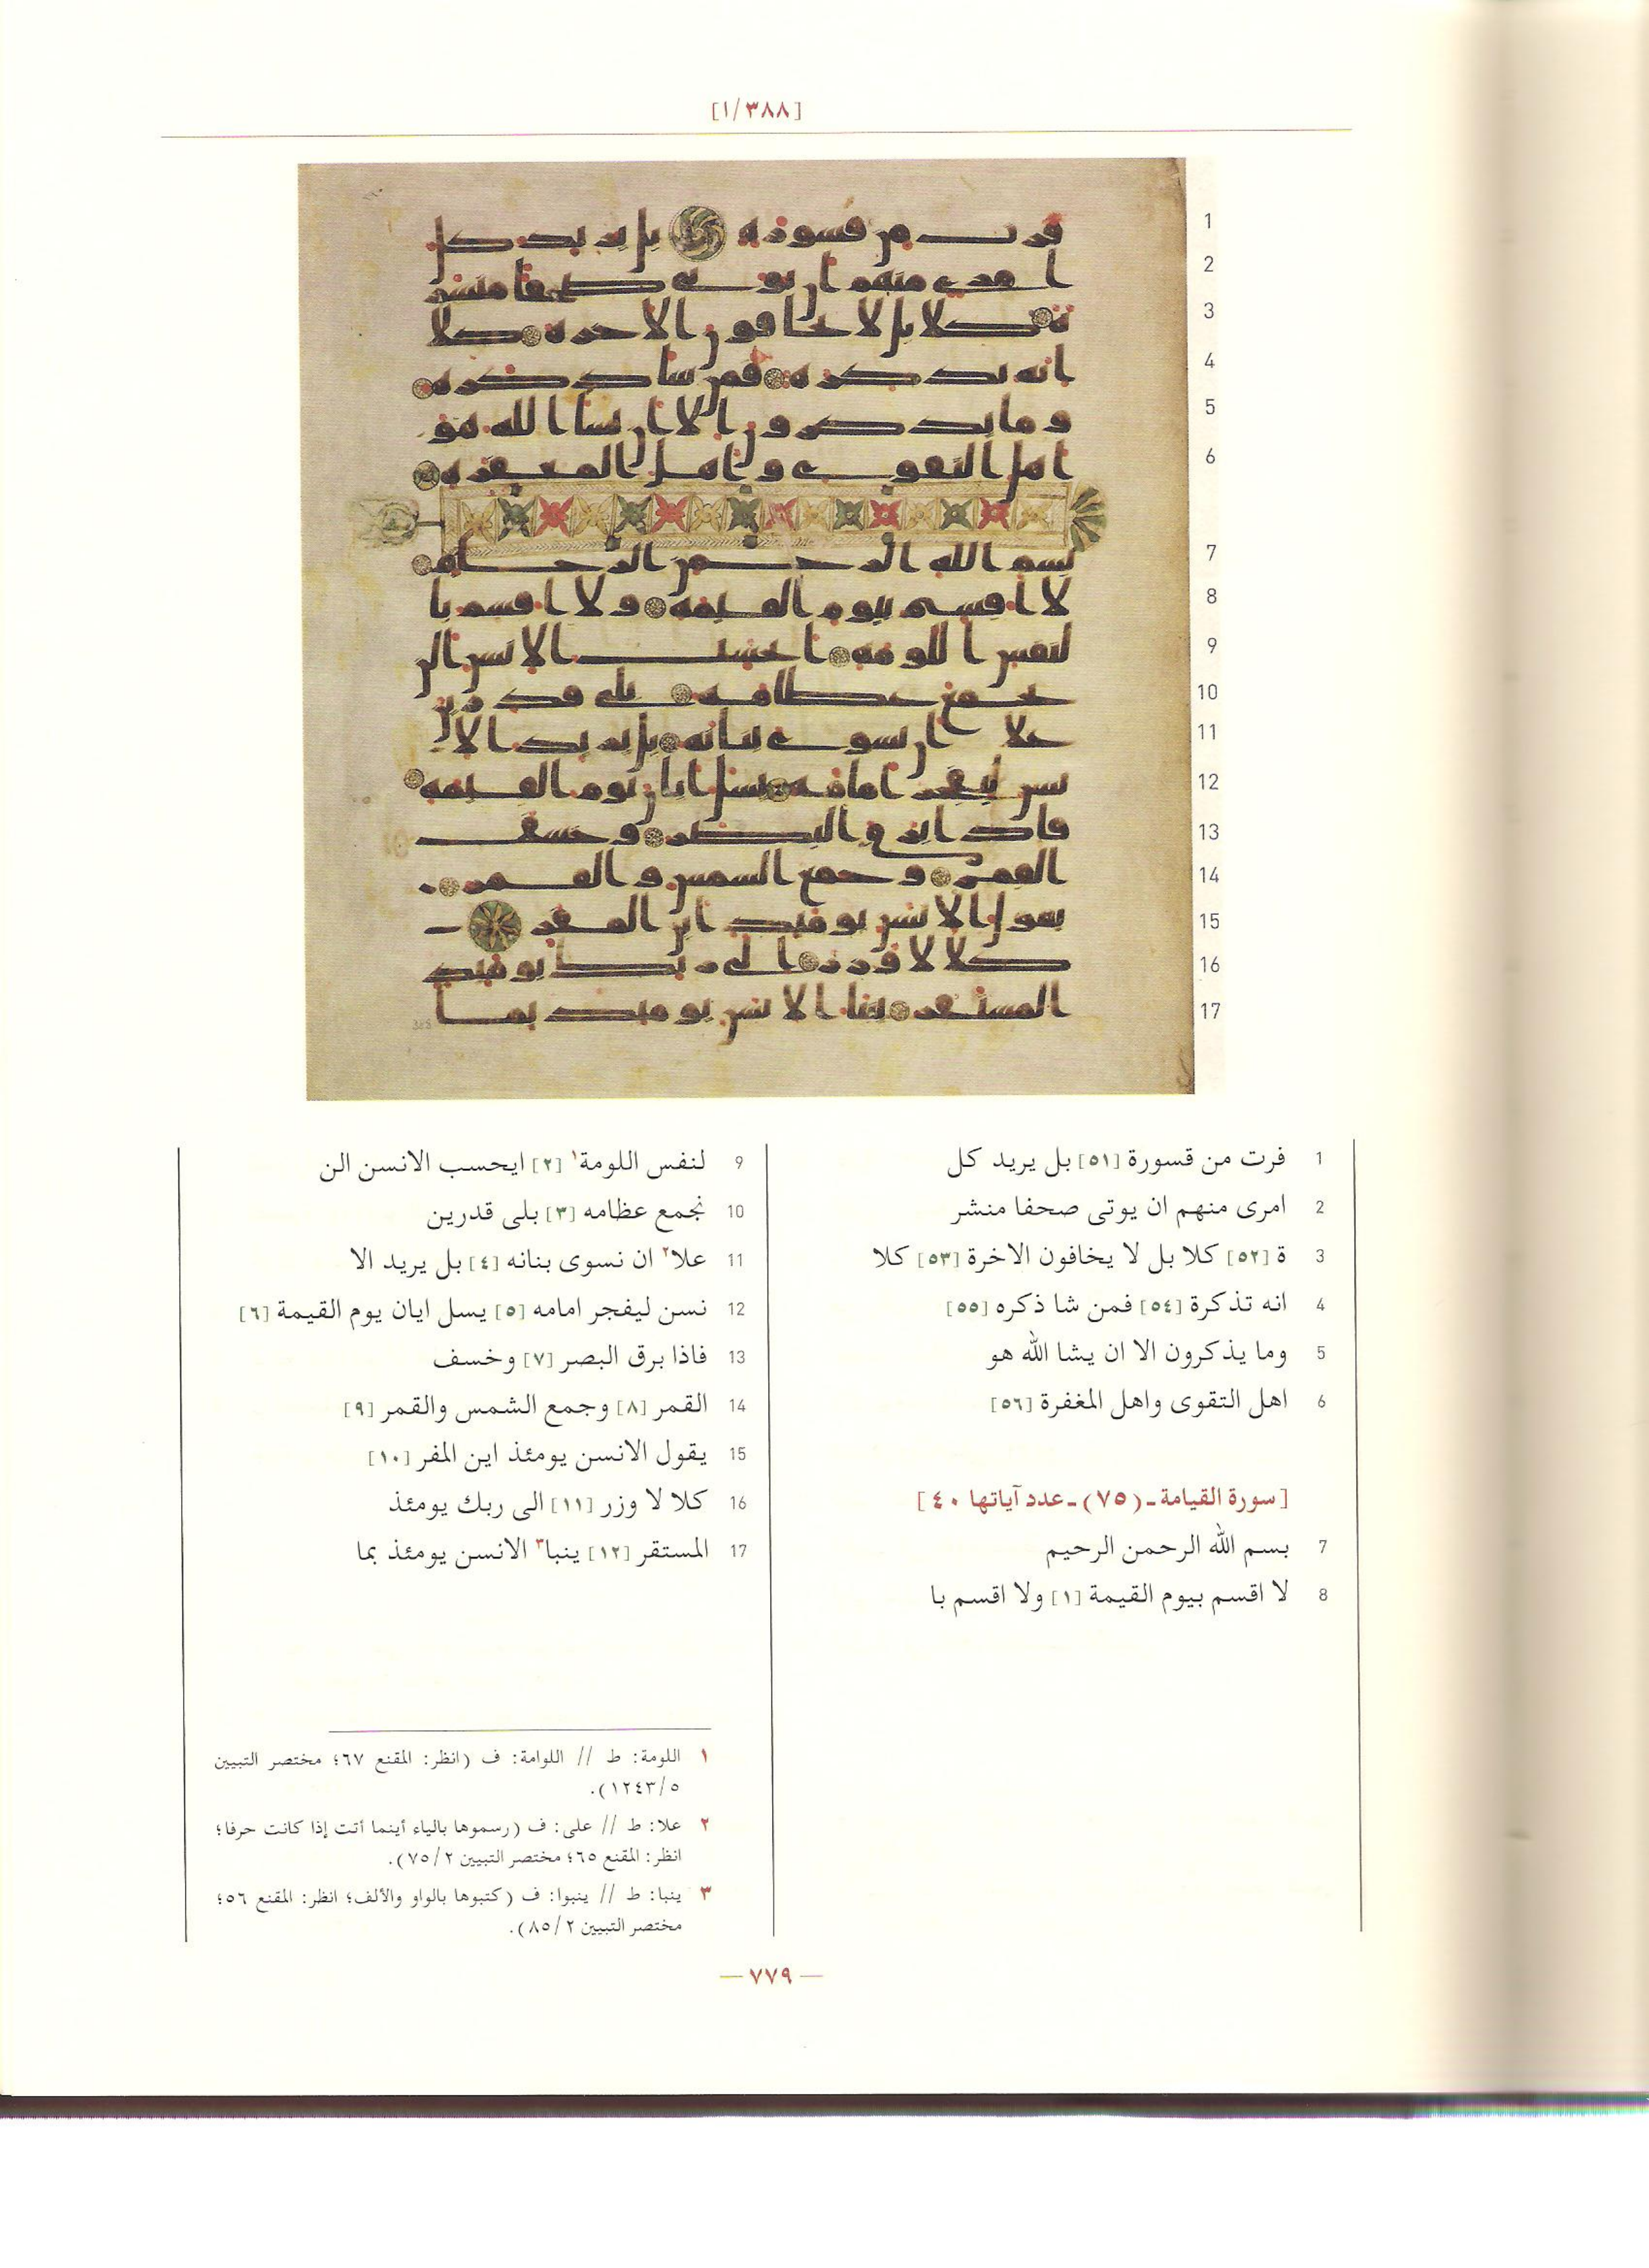 [١/٣٨٨]
1 فرت من قسورة [٥١] بل يريد كل
2 امرى منهم ان يوتى صحفا منشر
3 ة [٥٢] كلا بل لا يخافون الاخرة [٥٣] كلا
4 انه تذكرة [٥٤] فمن شا ذكره [٥٥]
5 وما يذكرون الا ان يشا الله هو
6 اهل التقوى واهل المغفرة [٥٦]
[سورة القيامة ـ (٧٥) ـ عدد آياتها ٤٠]
7 بسم الله الرحمن الرحيم
8 لا اقسم بيوم القيمة [١] ولا اقسم با
9 لنفس اللومة١ [٢] ايحسب الانسن الن
10 نجمع عظامه [٣] بلى قدرين
11 علا٢ ان نسوى بنانه [٤] بل يريد الا
12 نسن ليفجر امامه [٥] يسل ايان يوم القيمة [٦]
13 فاذا برق البصر [٧] وخسف
14 القمر [٨] وجمع الشمس والقمر [٩]
15 يقول الانسن يومئذ اين المفر [١٠]
16 كلا لا وزر [١١] الى ربك يومئذ
17 المستقر [١٢] ينبا٣ الانسن يومئذ بما
١ اللومة: ط // اللوامة: ف (انظر: المقنع ٦٧؛ مختصر التبيين
٥/١٢٤٣).
٢ علا: ط // على: ف (رسموها بالياء أينما أتت إذا كانت حرفا؛
انظر: المقنع ٦٥؛ مختصر التبيين ٢/٧٥).
٣ ينبا: ط // ينبوا: ف (كتبوها بالواو والألف؛ انظر: المقنع ٥٦؛
مختصر التبيين ٢/٨٥).
— ٧٧٩ —